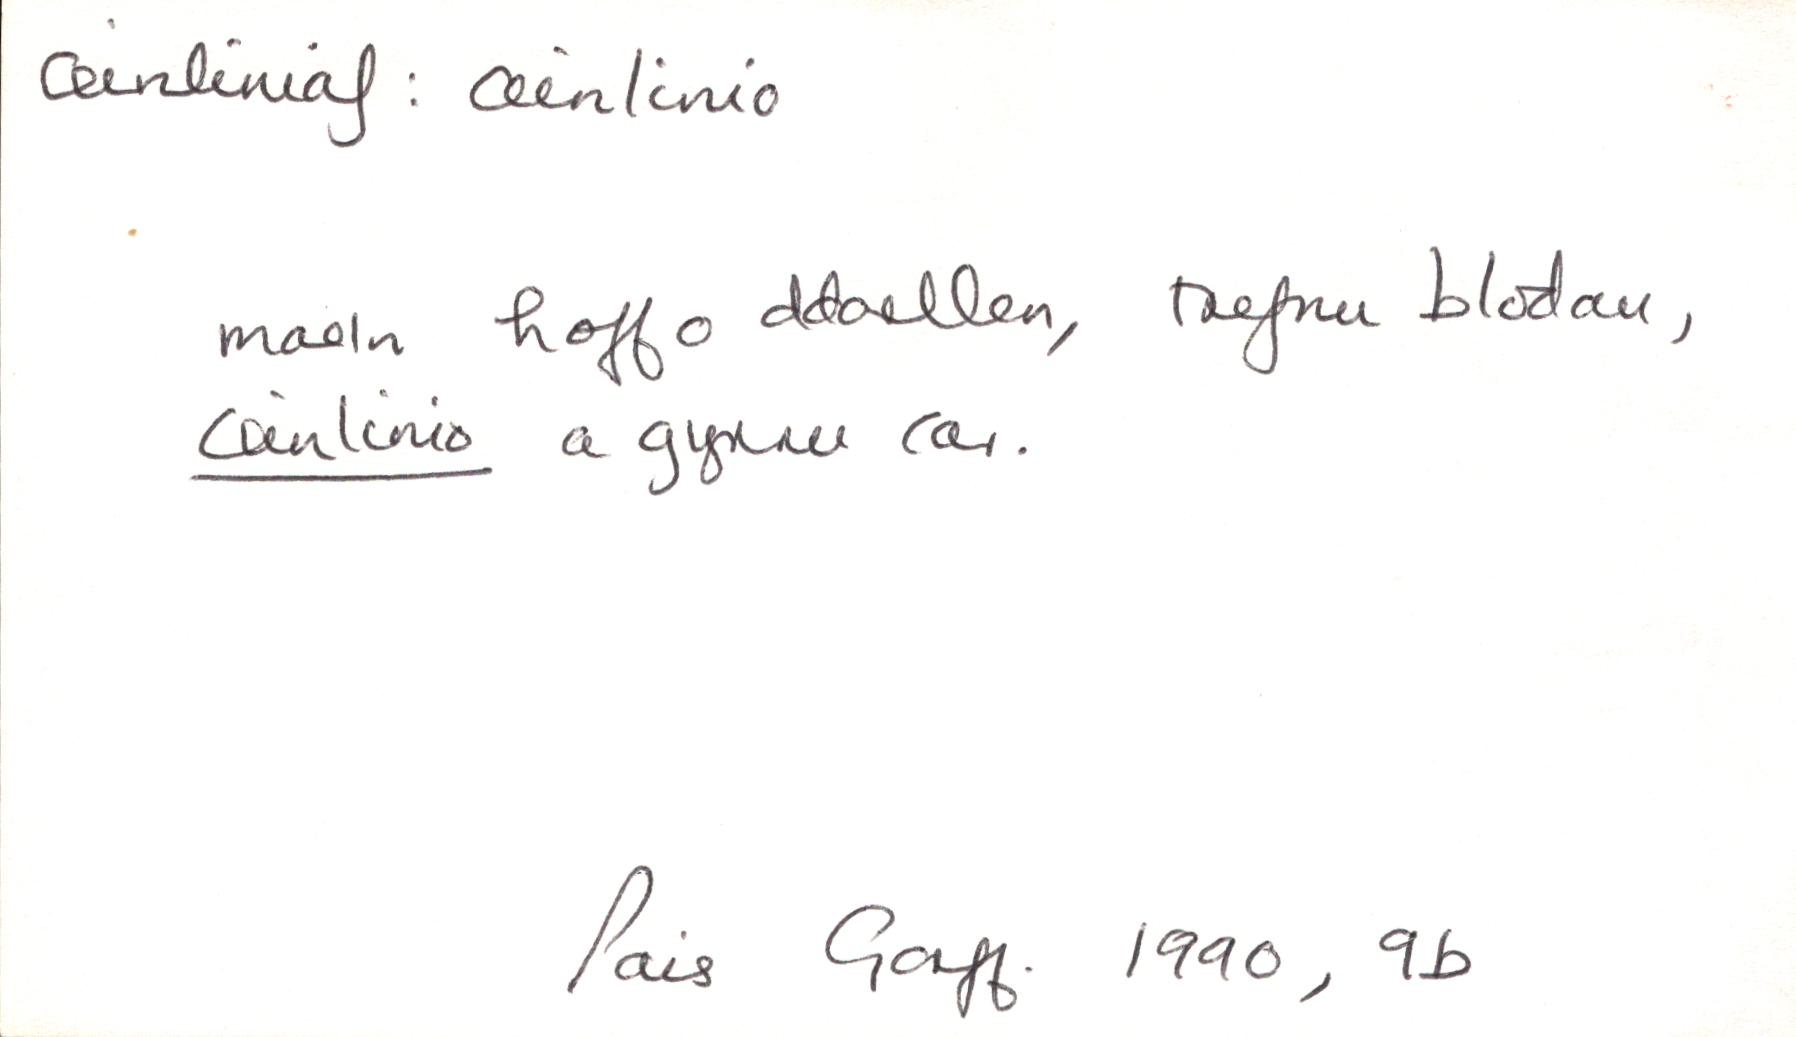 ceinliniaf: ceinlinio
mae'n hoffo ddarllen, trefnu blodau,
ceinlinio a gyrru car.
Pais Gorff. 1990, 9b